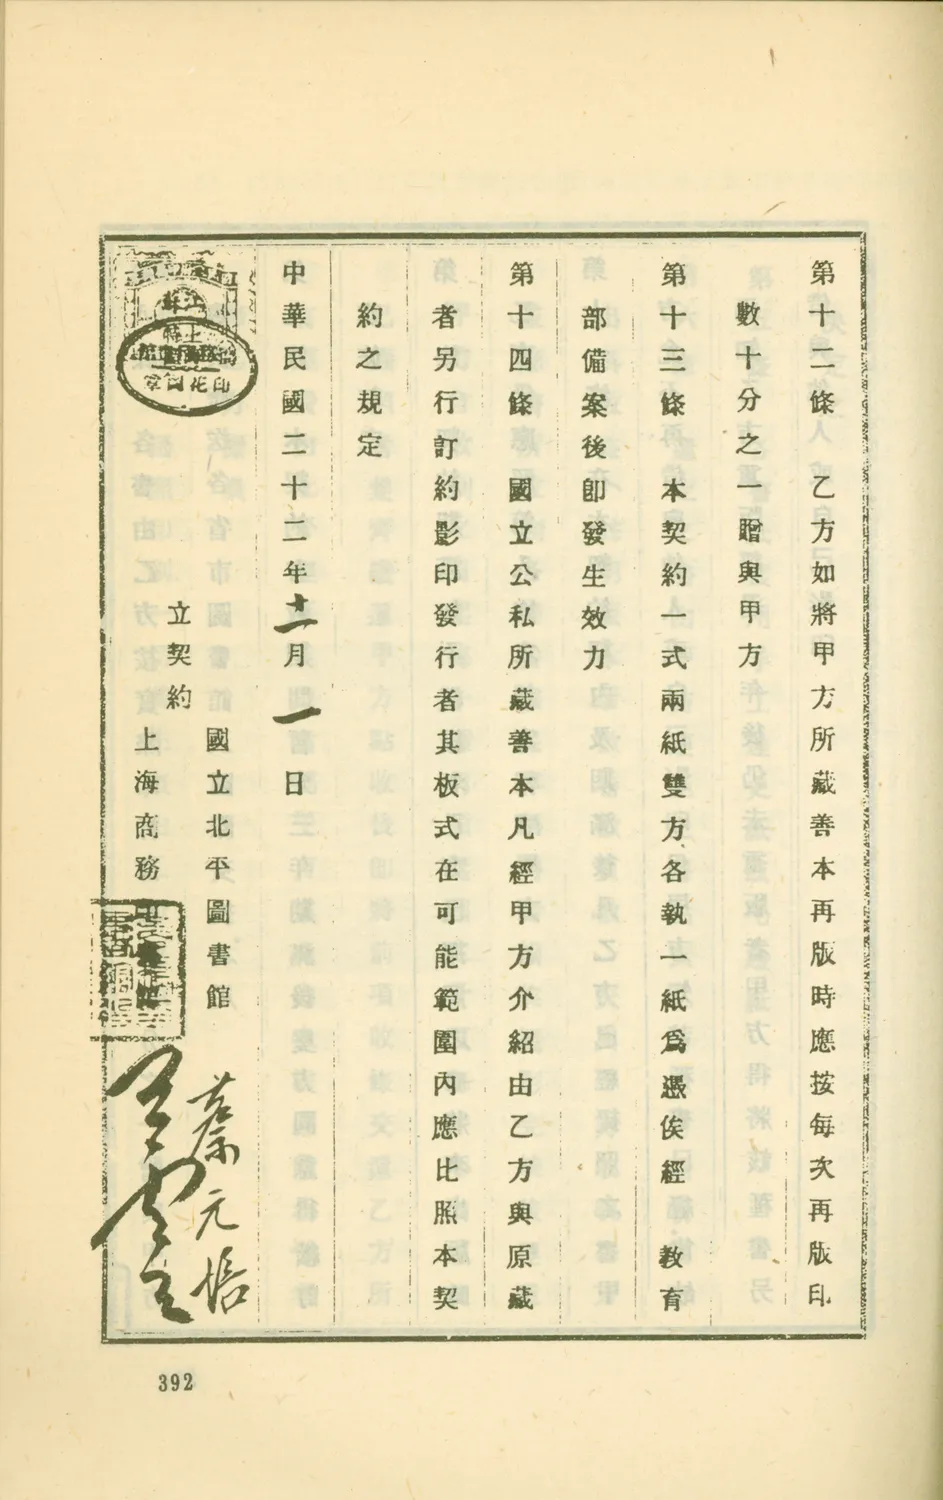 第十二條　乙方如將甲方所藏善本再版時應按每次再版印
數十分之一贈與甲方
第十三條　本契約一式兩紙雙方各執一紙爲憑俟經　教育
部備案後卽發生效力
第十四條　國立公私所藏善本凡經甲方介紹由乙方與原藏
者另行訂約影印發行者其板式在可能範圍內應比照本契
約之規定
中華民國二十二年十一月一日
立契約
國立北平圖書館　蔡元培
上海商務印書館　王雲五
392